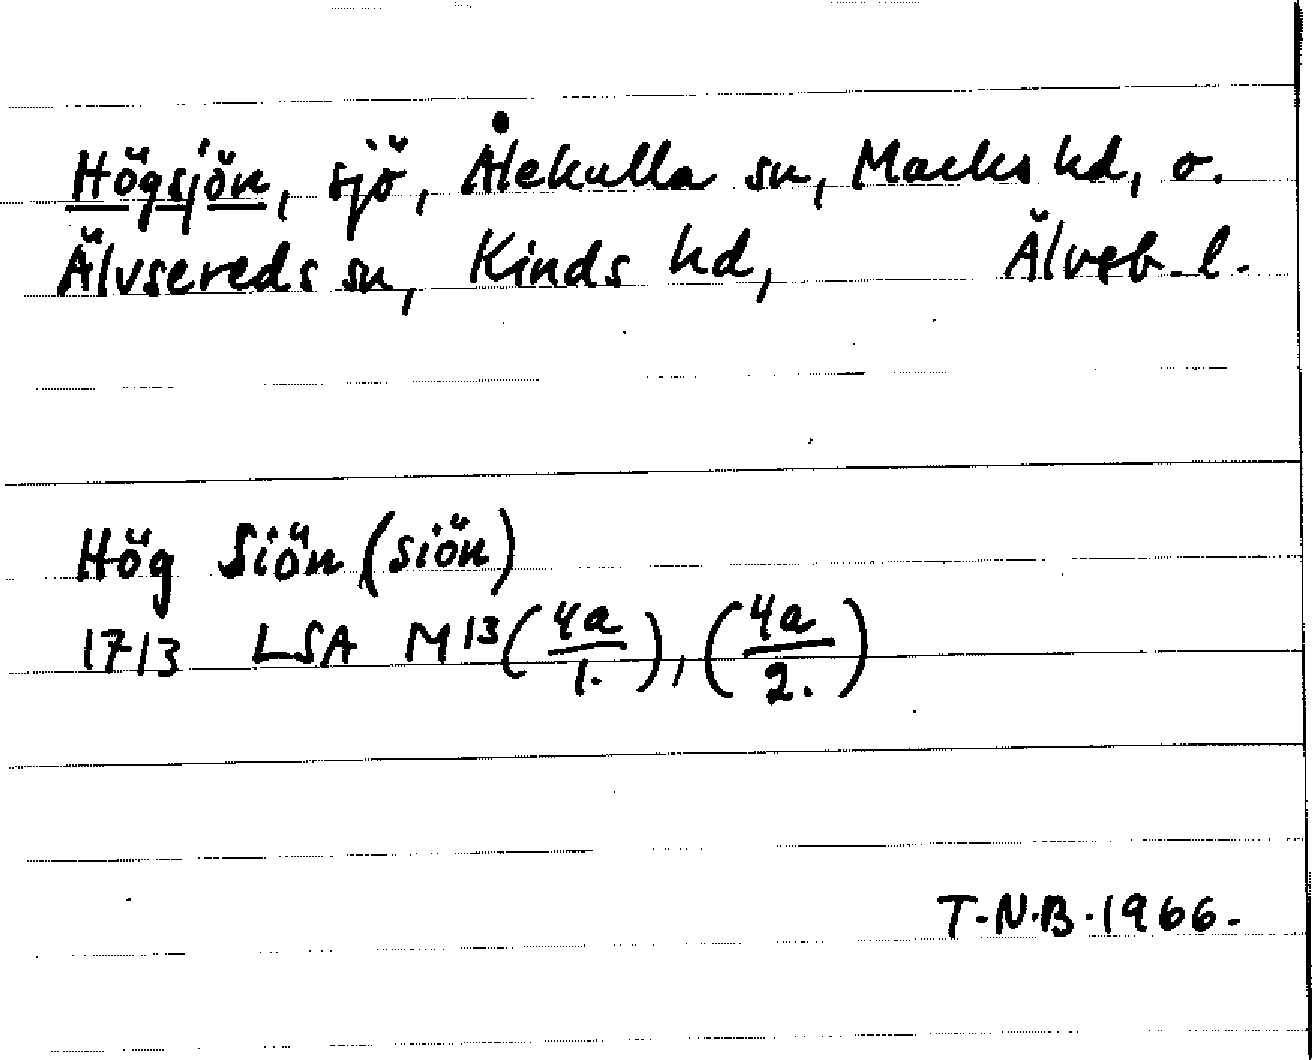 Högsjön, sjö, Ålekulla sn, Marks hd, o.
Älvsereds sn, Kinds hd, Älvsb. l.
Hög Siön (siön)
1713 LSA M13 (4a/1.), (4a/2.)
T.N.B. 1966.